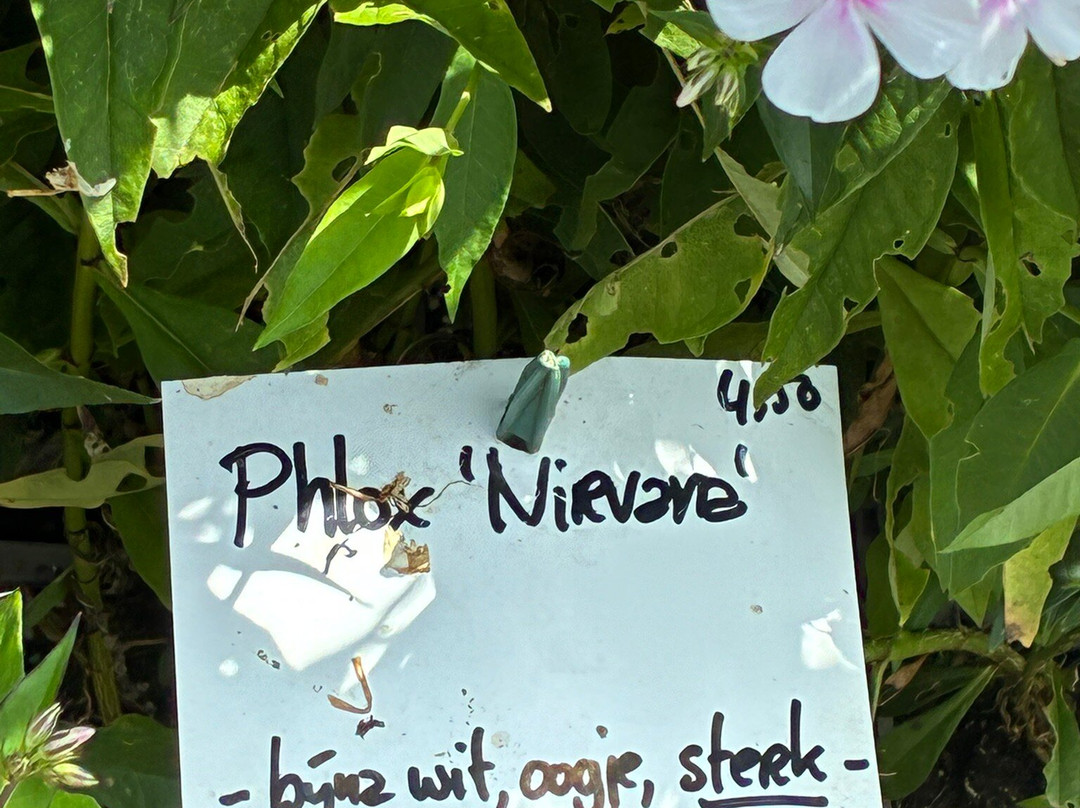 4,50
Phlox 'Nirvana'
- bijna wit, oogje, sterk -